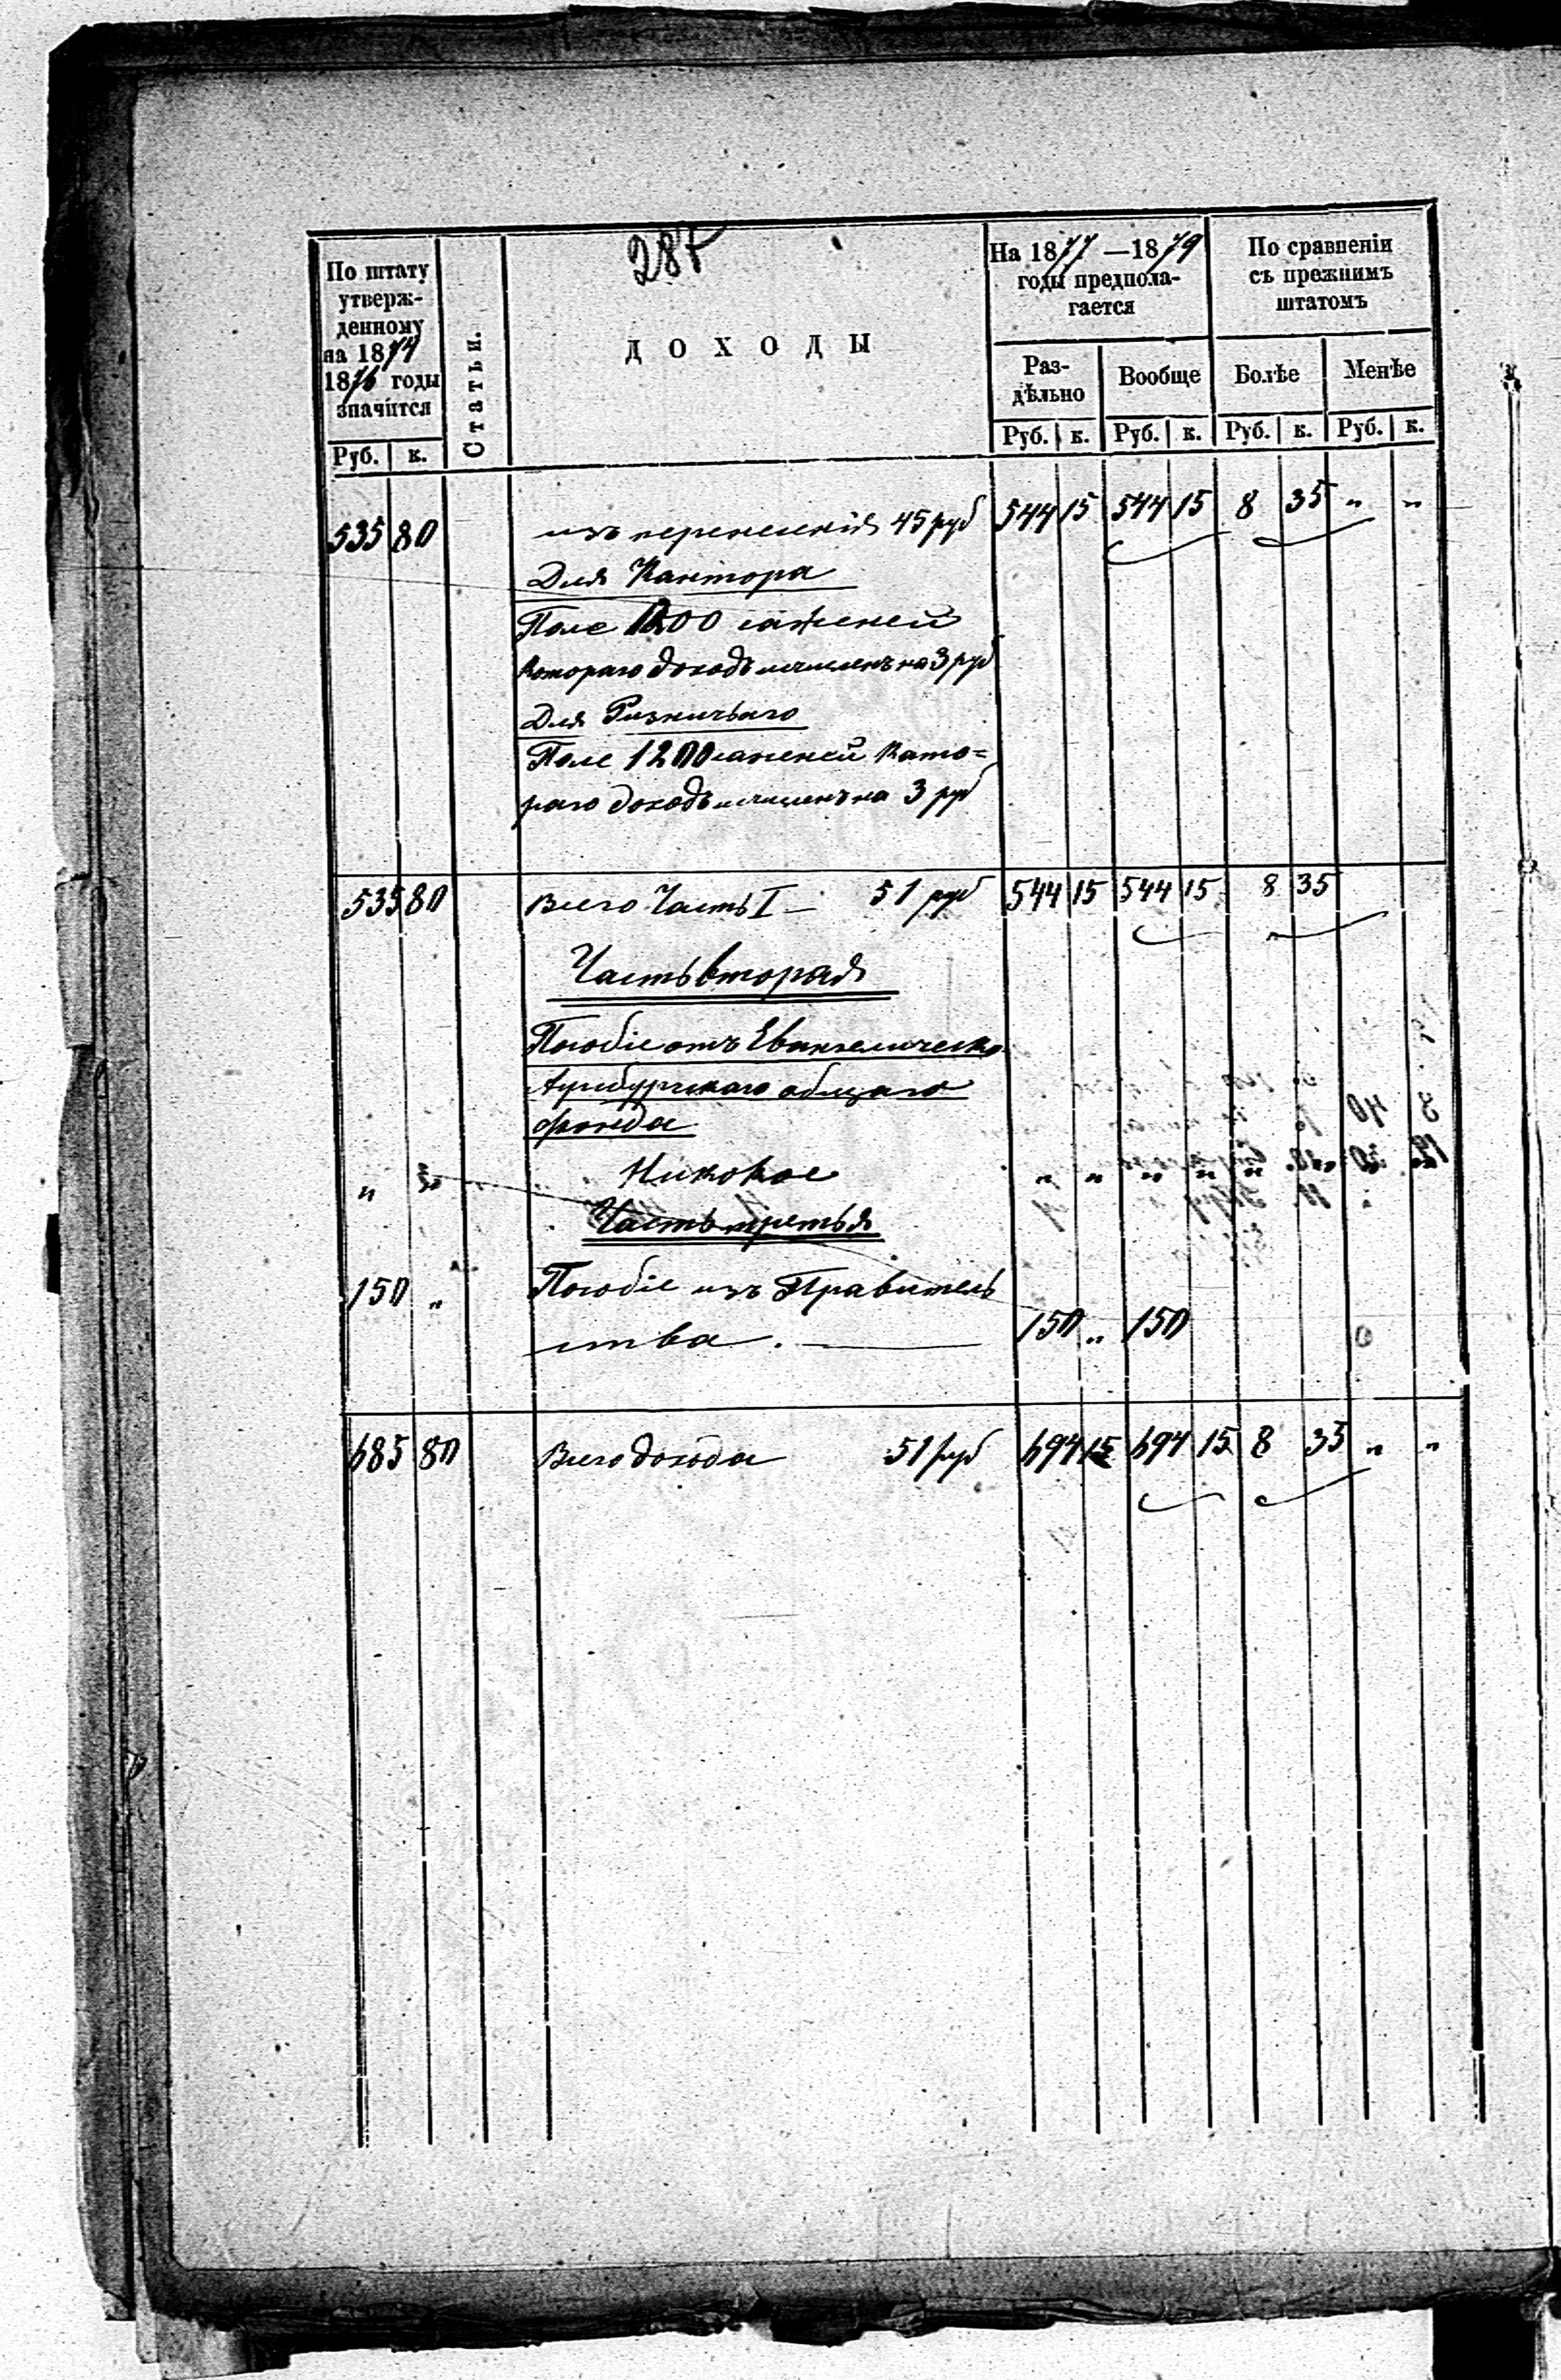 287
По штату
утверж-
денному
на 1874
1876 годы
значится
Статьи.
ДОХОДЫ
На 1877 —1879
годы предпола-
гается
По сравненіи
съ прежнимъ
штатомъ
Раз-
дѣльно
Вообще
Болѣе
Менѣе
Руб. к.
Руб. к. Руб. к. Руб. к. Руб. к.
535 80 изъ перенесенія 45 руб 544 15 544 15 8 35 " "
Для Кантора
Поле 1200 саженей
котораго доходъ исчисленъ на 3 руб
Для Ризничьаго
Поле 1200 саженей като=
раго доходъ исчисленъ на 3 руб
535 80 Всего Часть I — 51 руб 544 15 544 15 8 35
Часть вторая
Пособіе отъ Евангелическо
Аугсбургскаго общаго
фонда
" " Никокое " " " " "
Часть третья
150 " Пособіе изъ Правитель
ства. — 150 " 150
685 80 Всего дохода 51 руб 694 15 694 15 8 35 " "